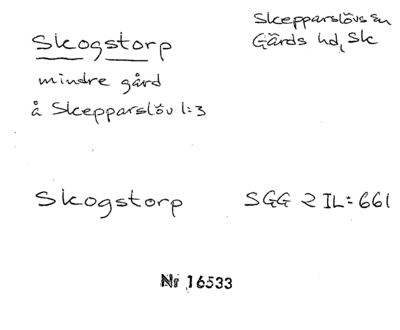 Skepparslövs sn
Skogstorp Gärds hd, Sk
mindre gård
å Skepparslöv 1:3
Skogstorp SGG 2 IL:661
Nr 16533